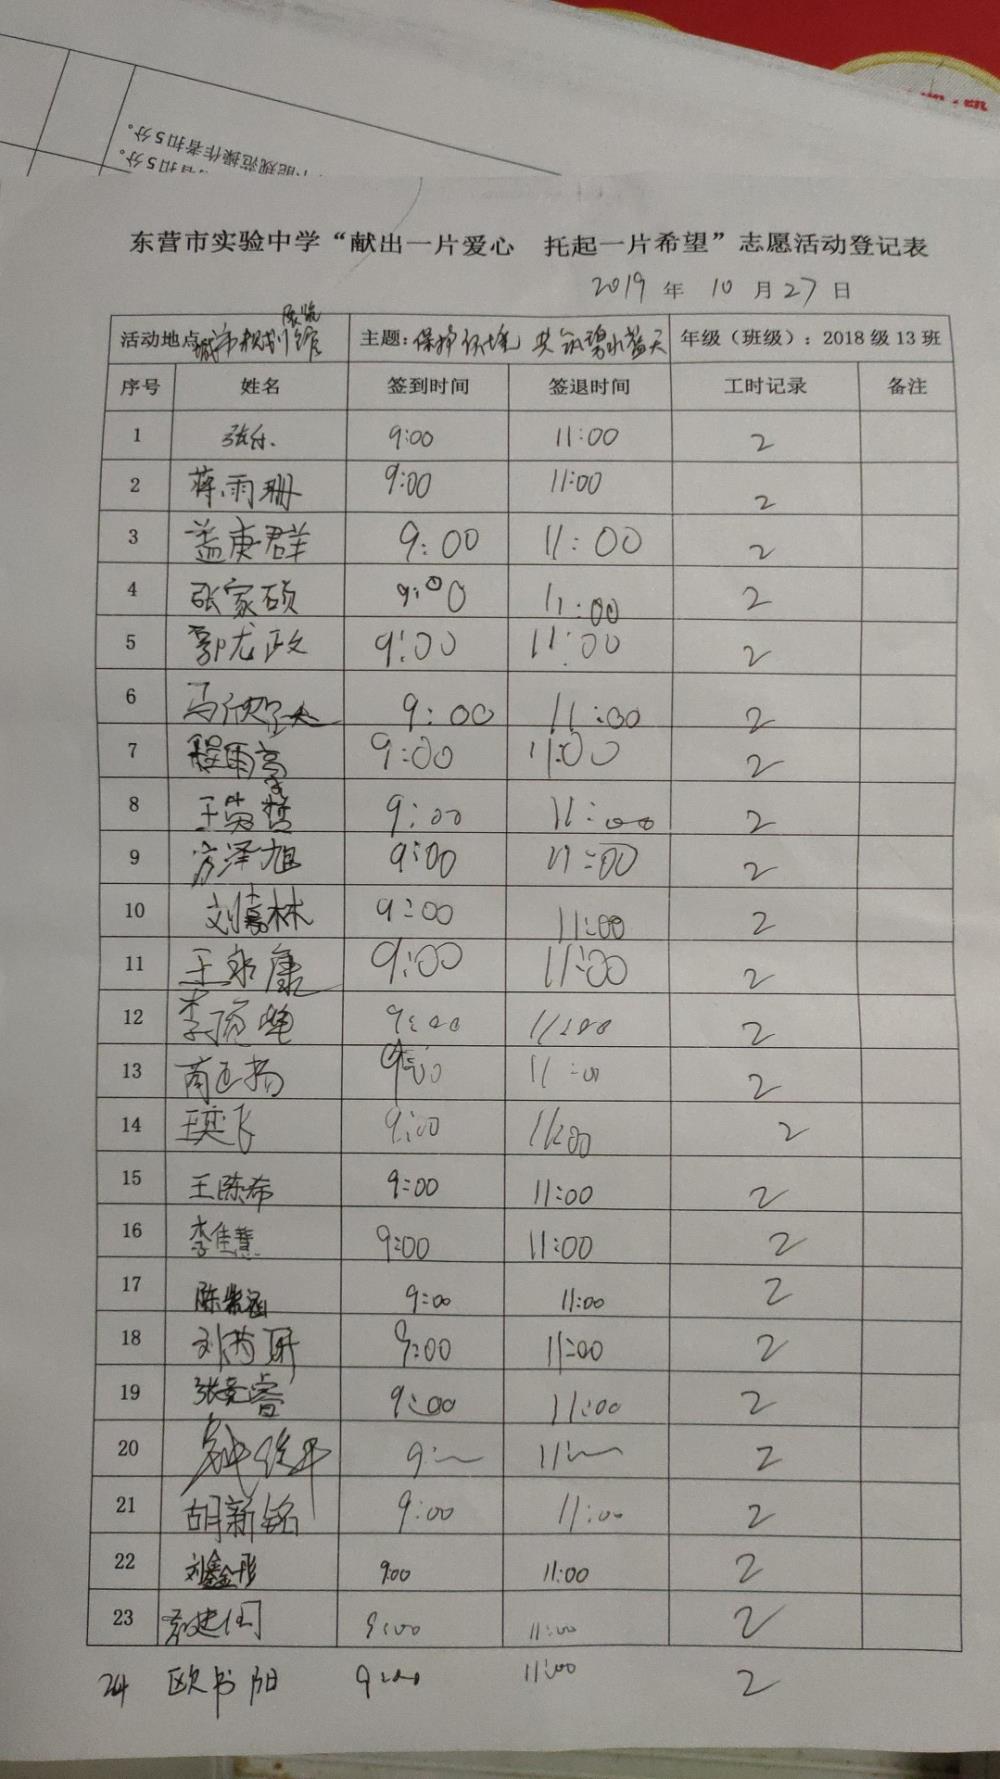 能规范操作者扣5分。
者扣5分。
东营市实验中学“献出一片爱心 托起一片希望”志愿活动登记表
2019 年 10 月 27 日
活动地点 城市规划展览馆 主题: 保护环境 共筑碧水蓝天 年级（班级）: 2018 级 13 班
序号 姓名 签到时间 签退时间 工时记录 备注
1 9:00 11:00 2
2 蒋雨珊 9:00 11:00 2
3 盖庚群 9:00 11:00 2
4 张家硕 9:00 11:00 2
5 郭龙政 9:00 11:00 2
6 9:00 11:00 2
7 程雨亭 9:00 11:00 2
8 王英哲 9:00 11:00 2
9 房泽旭 9:00 11:00 2
10 刘嘉林 9:00 11:00 2
11 王永康 9:00 11:00 2
12 9:00 11:00 2
13 9:00 11:00 2
14 王奕飞 9:00 11:00 2
15 王陈希 9:00 11:00 2
16 李佳慧 9:00 11:00 2
17 陈紫涵 9:00 11:00 2
18 9:00 11:00 2
19 9:00 11:00 2
20 9: 11: 2
21 胡新铭 9:00 11:00 2
22 刘鑫彤 9:00 11:00 2
23 9:00 11:00 2
24 欧书阳 9:00 11:00 2